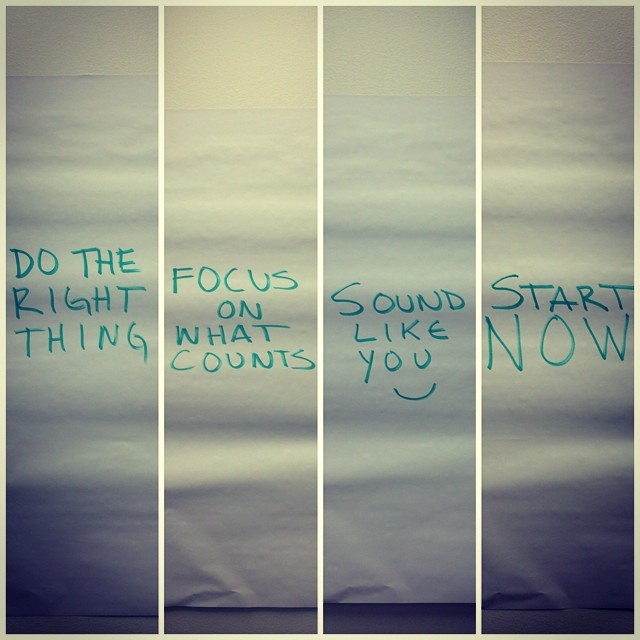 DO THE
RIGHT
THING
FOCUS
ON
WHAT
COUNTS
SOUND
LIKE
YOU
START
NOW